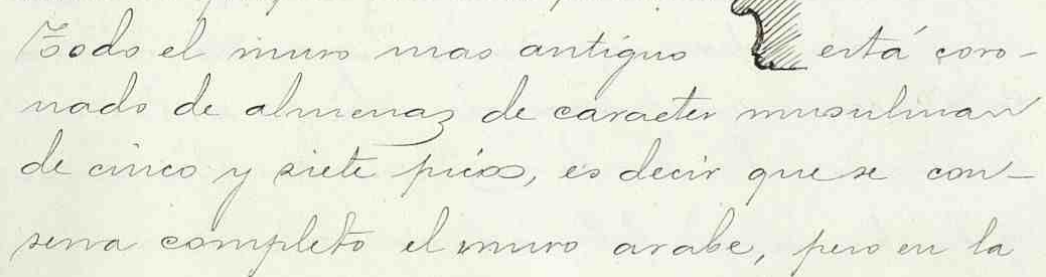 Todo el muro mas antiguo está coro-
nado de almenas de caracter musulman
de cinco y siete picos, es decir que se con-
serva completo el muro arabe, pero en la